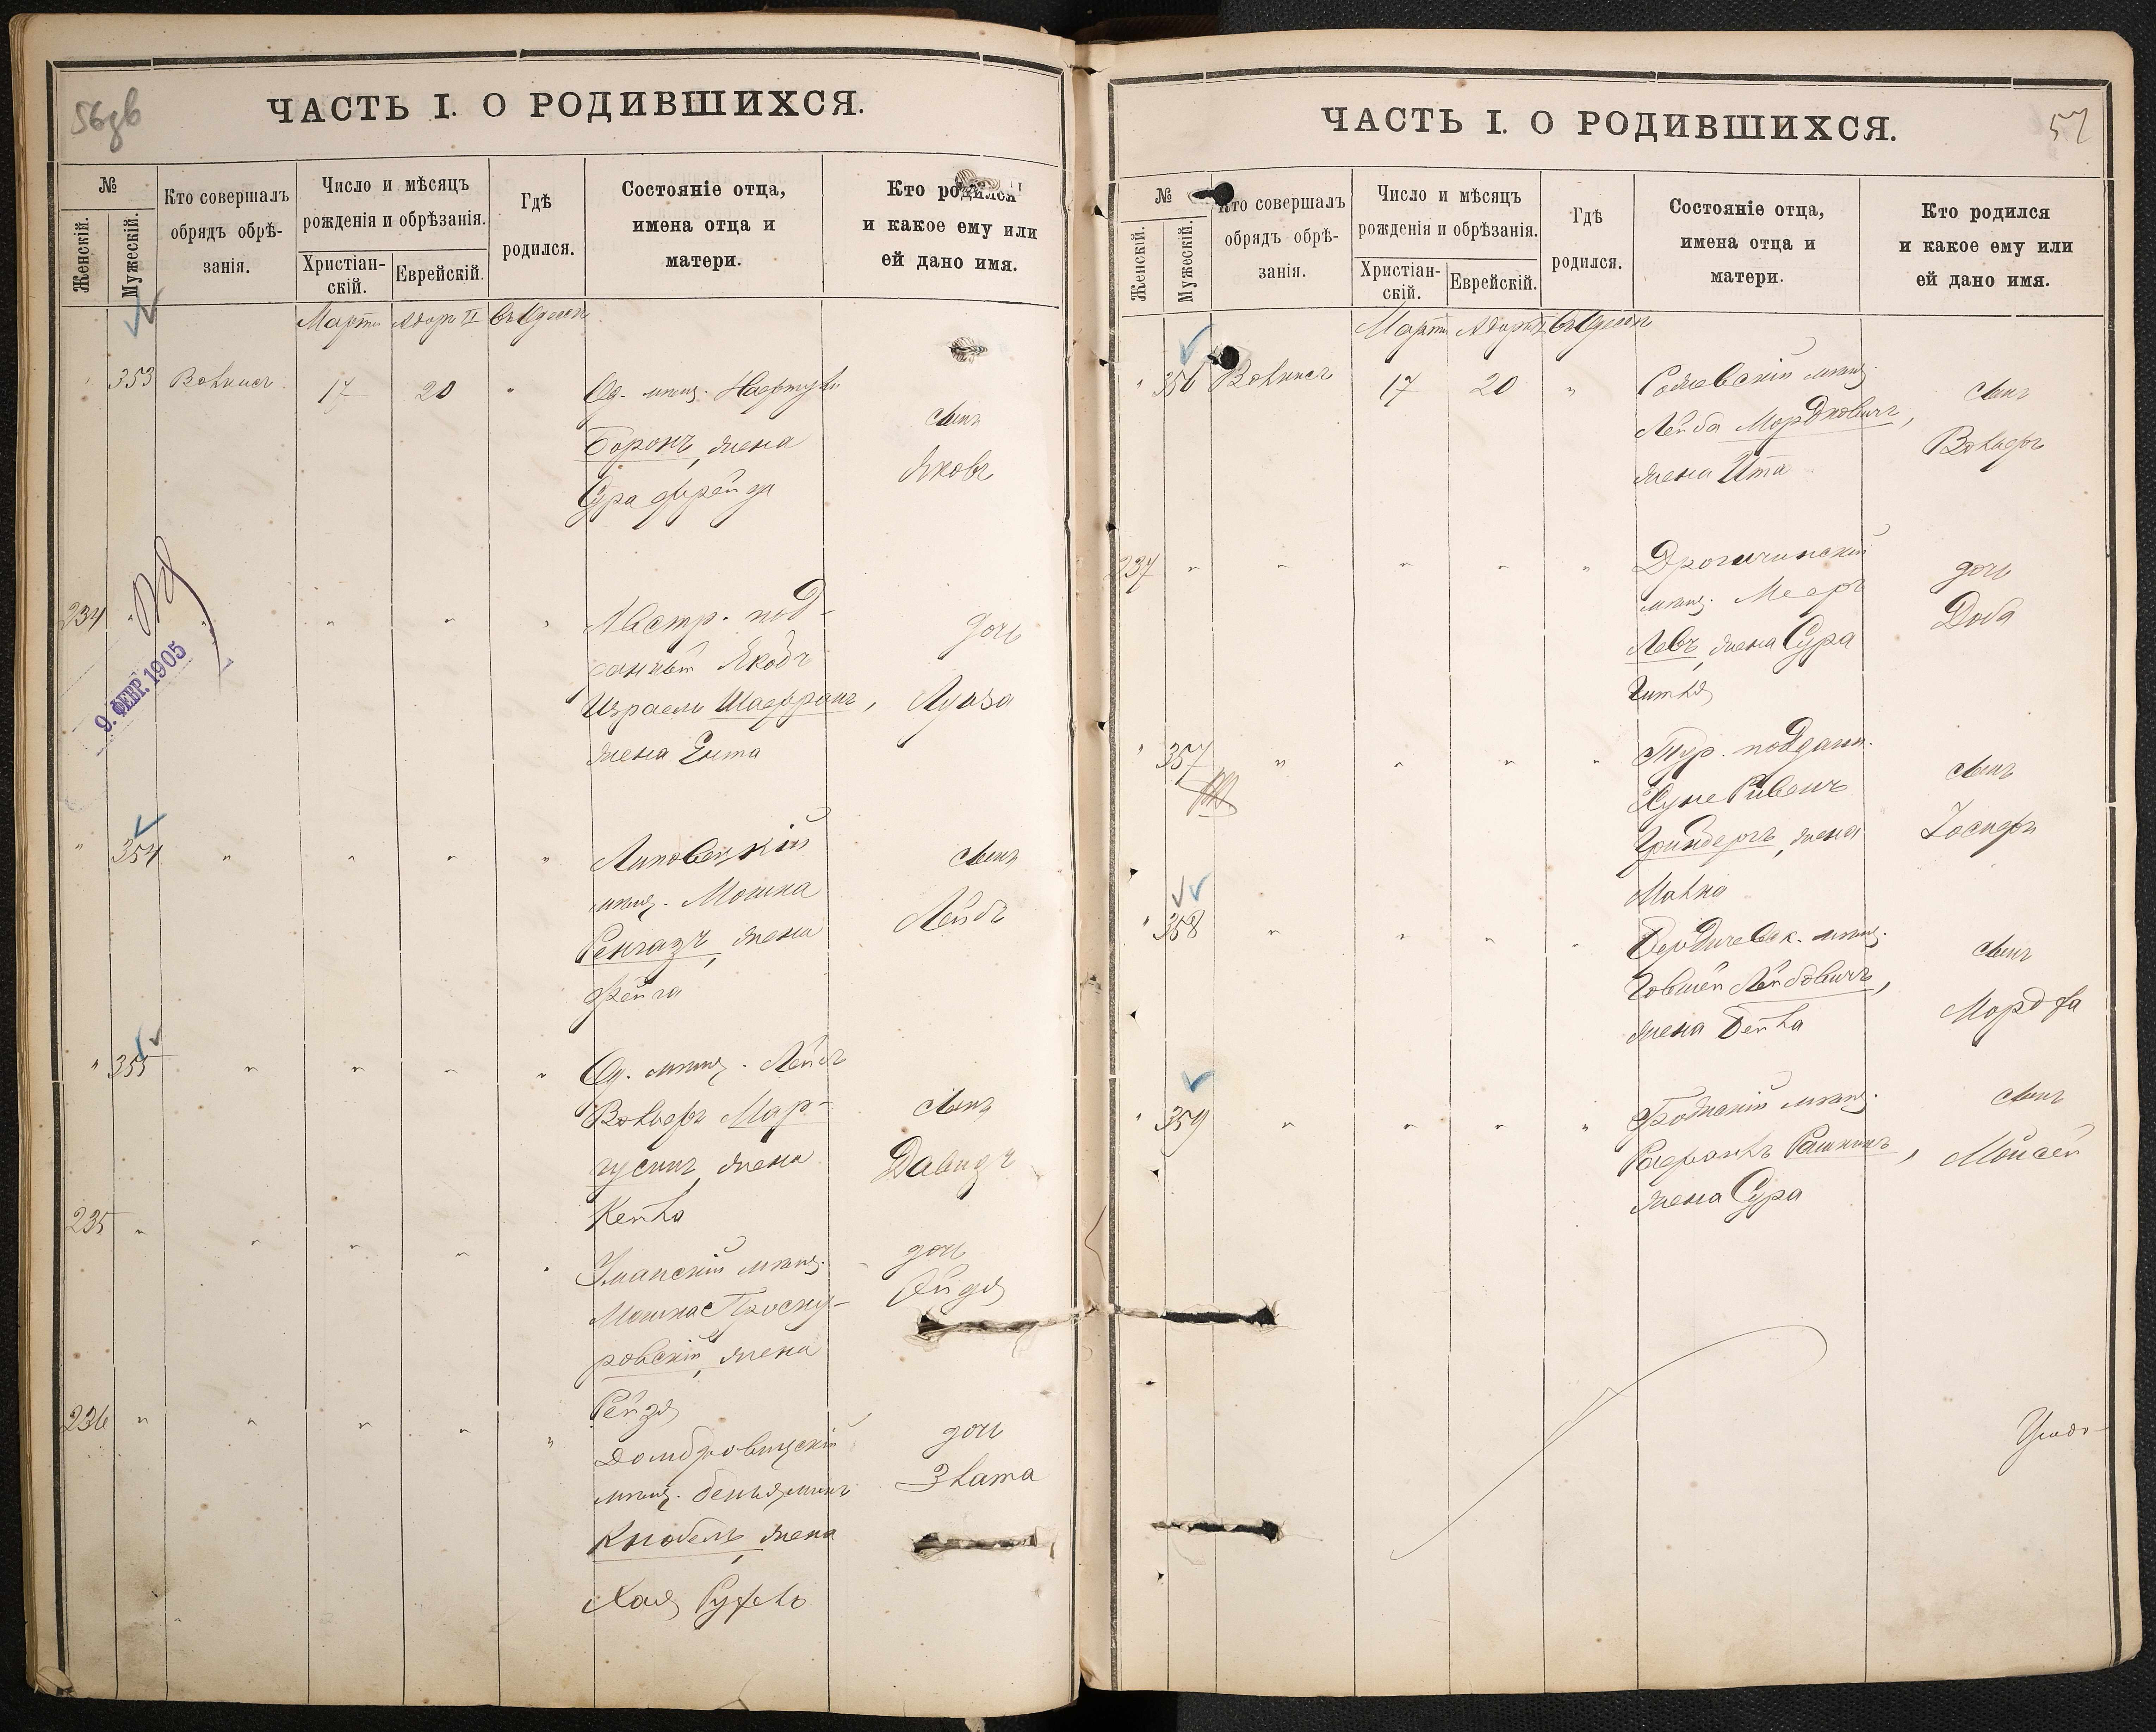 56 дв
ЧАСТЬ I. О РОДИВШИХСЯ.
№
Женскій.
Мужескій.
Кто совершалъ
обрядъ обрѣ-
занія.
Число и мѣсяцъ
рожденія и обрѣзанія.
Христіан-
скій.
Еврейскій.
Гдѣ
родился.
Состояніе отца,
имена отца и
матери.
Кто родился
и какое ему или
ей дано имя.
Мартъ Адаръ II въ Одессѣ
" 353 17 20 " Од. мѣщ. Нафтула
Боронъ, жена
Сура Фрейда
сынъ
Яковъ
234 " " " " " Австр. под-
данный Якобъ
Израель Шафранъ,
жена Ента
дочь
Луиза
9. ФЕВР. 1905
" 354 " " " " Липовецкій
мѣщ. Мошка
Ренгазъ, жена
Фейга
сынъ
Лейбъ
" 355 " " " " Од. мѣщ. Лейбъ
Вольфъ Мар-
гусинъ, жена
Кейла
сынъ
Давидъ
235 " " " " " Уманскій мѣщ.
Мошка Проску-
ровскій, жена
Рейзя
дочь
Эйдя
236 " " " " " Домбровицскій
мѣщ. Беньяминъ
Кнобель, жена
Хая Рухль
дочь
Злата
57
ЧАСТЬ I. О РОДИВШИХСЯ.
№
Женскій.
Мужескій.
Кто совершалъ
обрядъ обрѣ-
занія.
Число и мѣсяцъ
рожденія и обрѣзанія.
Христіан-
скій.
Еврейскій.
Гдѣ
родился.
Состояніе отца,
имена отца и
матери.
Кто родился
и какое ему или
ей дано имя.
Мартъ Адаръ II въ Одессѣ
" 356 17 20 " мѣщ.
Лейба Мордковичъ,
жена Ита
сынъ
Вольфъ
237 " " " " " Дрогичинскій
мѣщ. Мееръ
Левъ, жена Сура
Гитля
дочь
Доба
" 357 " " " " Тур. поддан.
Хуне Ривенъ
Гринбергъ, жена
Малка
сынъ
Іосифъ
" 358 " " " " Бердичевск. мѣщ.
Говшей Лейбовичъ,
жена Бейла
сынъ
Мордха
" 359 " " " " мѣщ.
Рафаилъ Рашкинъ,
жена Сура
сынъ
Мойсей